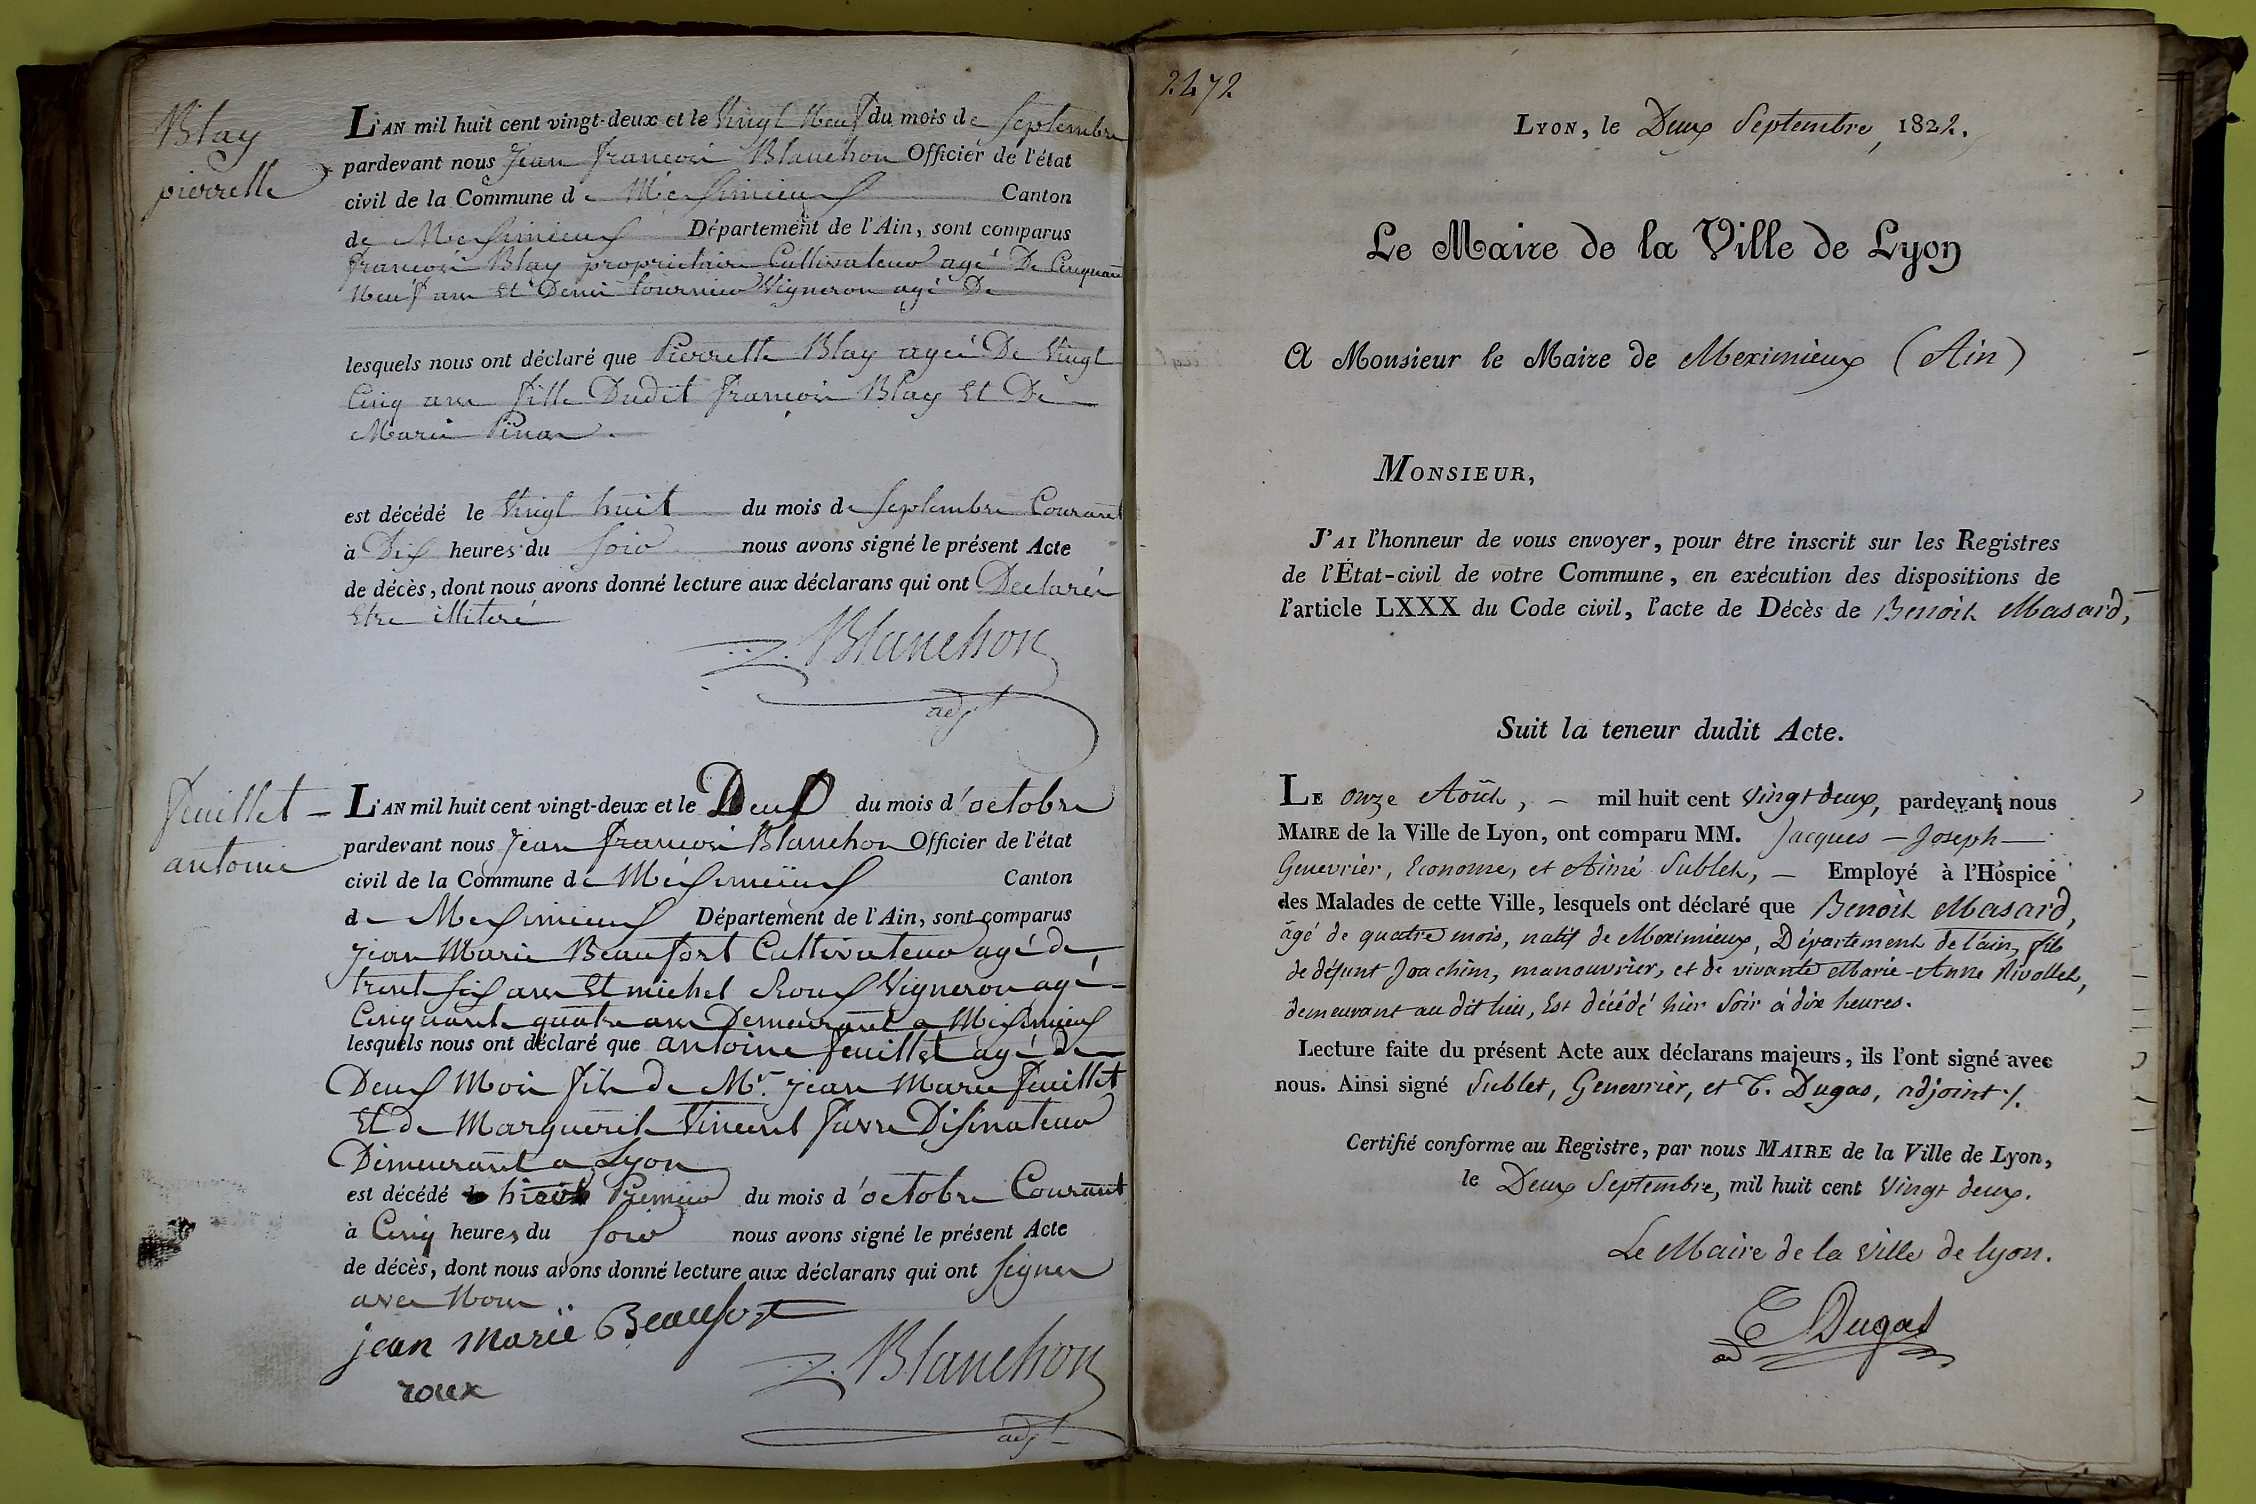 Blay
pierrette
L'AN mil huit cent vingt-deux et le Vingt Neuf du mois de Septembre
pardevant nous Jean francois Blanchon Officier de l'état
civil de la Commune de Meximieux Canton
de Meximieux Département de l'Ain, sont comparus
francois Blay proprietaire Cultivateur agé De Cinquante
Neuf ans Et Denis fournier Vigneron agé De
lesquels nous ont déclaré que Pierrette Blay agée De Vingt
Cinq ans fille Dudit francois Blay Et De
Marie
est décédé le Vingt huit du mois de Septembre Courant
à Dix heures du Soir nous avons signé le présent Acte
de décès, dont nous avons donné lecture aux déclarans qui ont Declarés
Etre illiteré
Blanchon
adjt
feuillet
antoine
L'AN mil huit cent vingt-deux et le Deux du mois d'octobre
pardevant nous Jean francois Blanchon Officier de l'état
civil de la Commune de Meximieux Canton
de Meximieux Département de l'Ain, sont comparus
Jean Marie Beaufort Cultivateur agé de
trente six ans Et michel Roux Vigneron agé
Cinquante quatre ans Demeurant a Meximieux
lesquels nous ont déclaré que antoine feuillet agé de
Deux Mois fils de Mr. jean Marie feuillet
Et de Marguerite Vincent favre Dissinateur
Demeurant a Lyon
est décédé le Premier du mois d'octobre Courant
à Cinq heures du Soir nous avons signé le présent Acte
de décès, dont nous avons donné lecture aux déclarans qui ont signer
avec Nous
jean marie Beaufort
roux
Blanchon
adjt
2472
LYON, le Deux Septembre, 1822.
Le Maire de la Ville de Lyon
A Monsieur le Maire de Meximieux (Ain)
MONSIEUR,
J'AI l'honneur de vous envoyer, pour être inscrit sur les Registres
de l'État-civil de votre Commune, en exécution des dispositions de
l'article LXXX du Code civil, l'acte de Décès de Benoît Masard,
Suit la teneur dudit Acte.
LE onze Août, — mil huit cent Vingt deux, pardevant nous
MAIRE de la Ville de Lyon, ont comparu MM. Jacques — Joseph —
Genevrier, Econome, et Aimé Sublet, — Employé à l'Hospice
des Malades de cette Ville, lesquels ont déclaré que Benoît Masard,
âgé de quatre mois, natif de Meximieux, Département de l'ain, fils
de défunt Joachim, manouvrier, et de vivante Marie-Anne Rivollet,
demeurant au dit lieu, Est décédé hier Soir à dix heures.
Lecture faite du présent Acte aux déclarans majeurs, ils l'ont signé avec
nous. Ainsi signé Sublet, Genevrier, et T. Dugas, adjoint ./.
Certifié conforme au Registre, par nous MAIRE de la Ville de Lyon,
le Deux Septembre, mil huit cent Vingt deux.
Le Maire de la Ville de lyon.
T Dugas